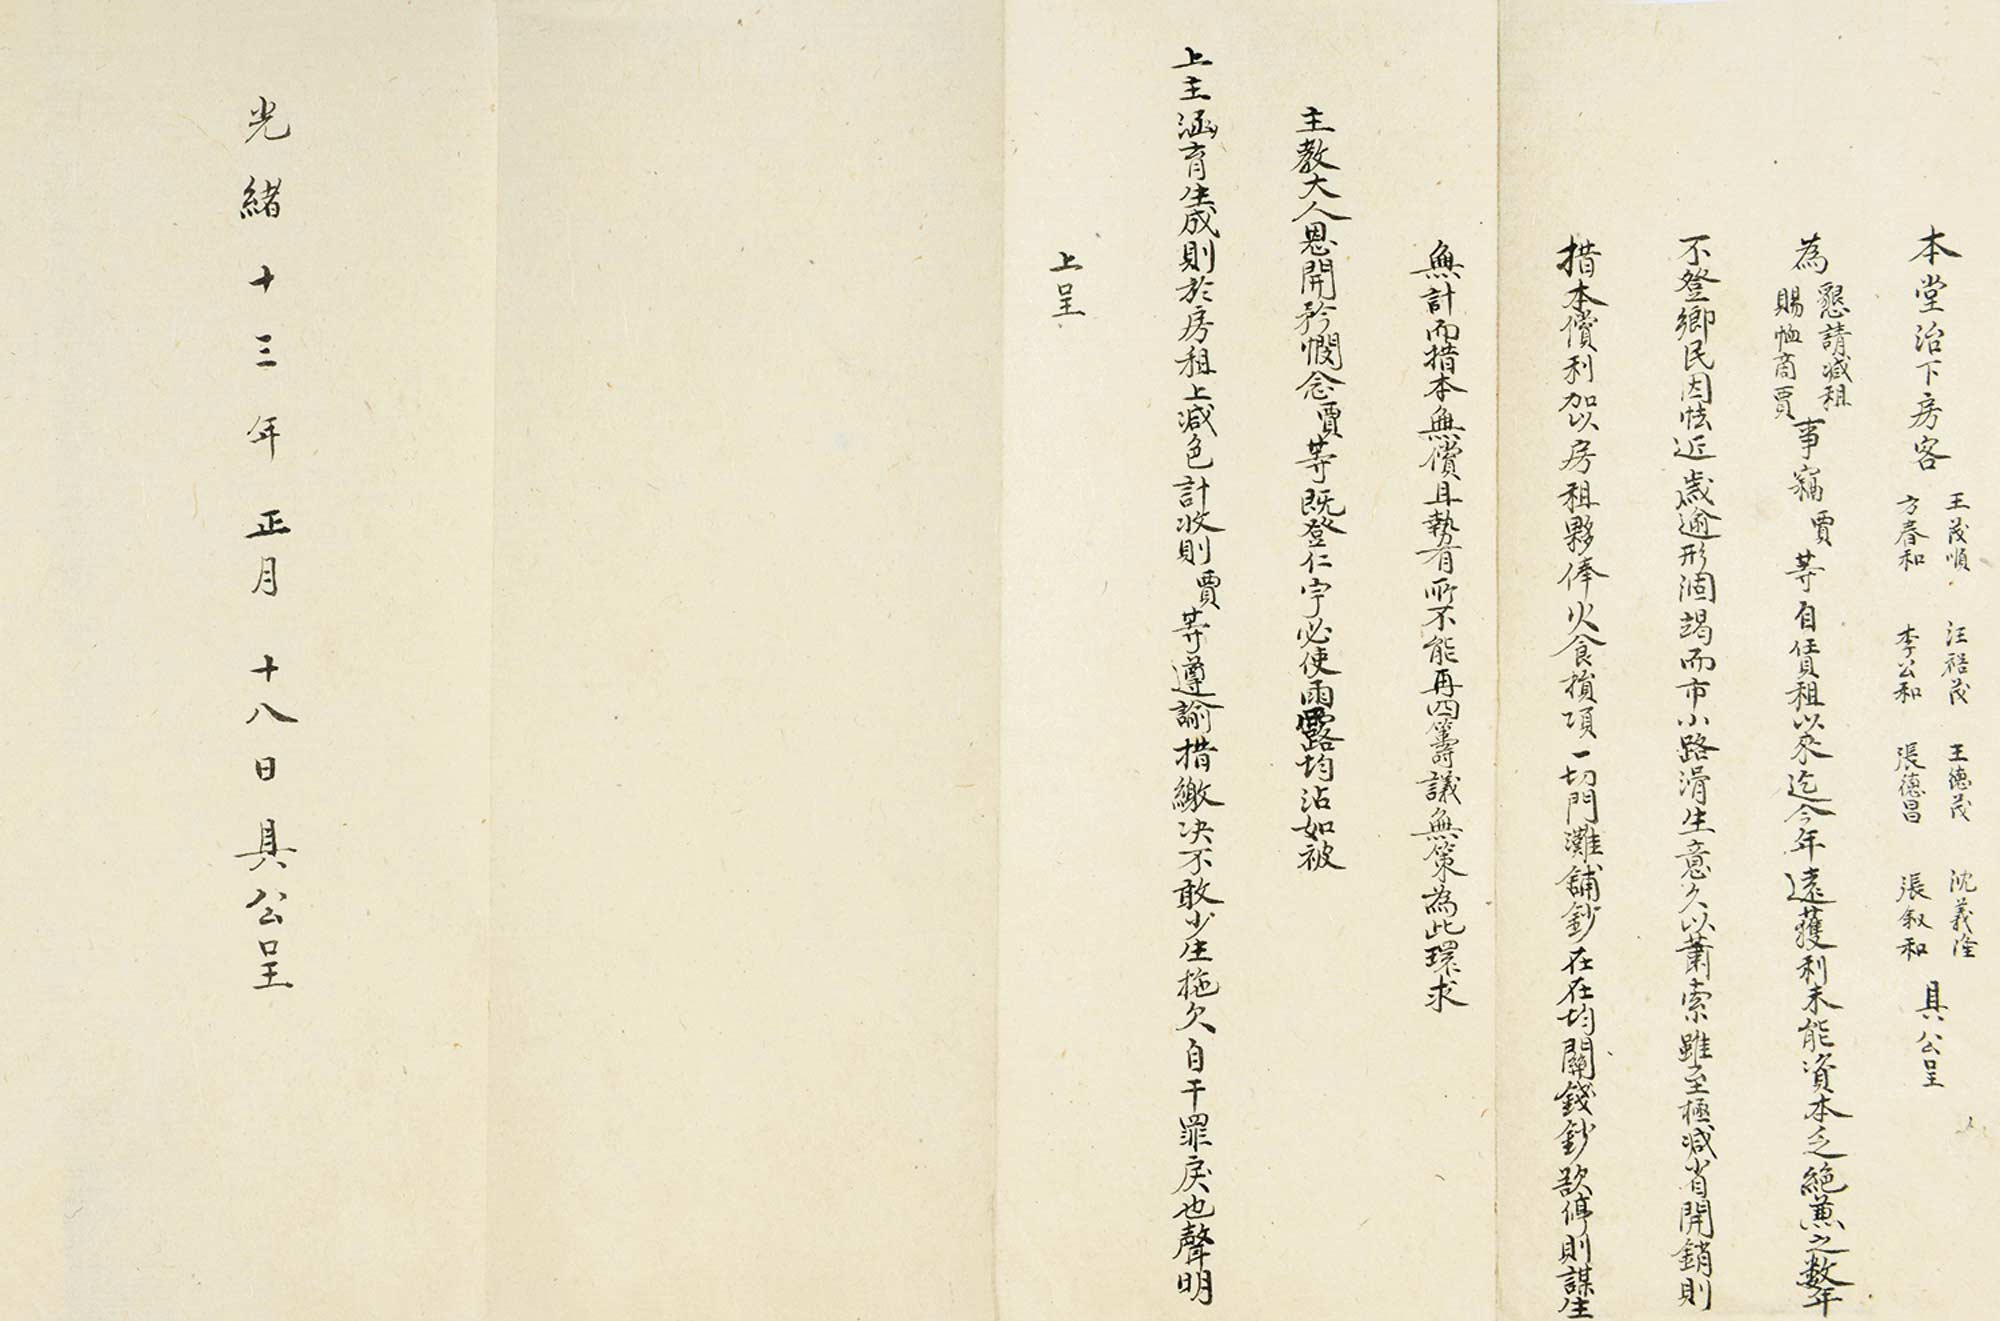 本堂治下房客 王茂順 汪裕茂 王德茂 沈義隆 方春和 李公和 張德昌 張叙和 具公呈
為懇請減租賜恤商賈事竊賈等自賃租以來迄今年遠獲利未能資本乏絕兼之數年
不登鄉民因怯近歲逾形涸竭而市小路滑生意久以蕭索雖至極減省開銷則
措本償利加以房租夥俸火食損項一切門灘鋪鈔在在均關錢鈔欲停則謀生
無計而措本無償且勢有所不能再四籌議無策為此環求
主教大人恩開矜憫念賈等既登仁宇必使雨露均沾如被
上主涵育生成則於房租上減色計收則賈等遵諭措繳決不敢少生拖欠自干罪戾也聲明
上呈
光緒十三年正月十八日具公呈